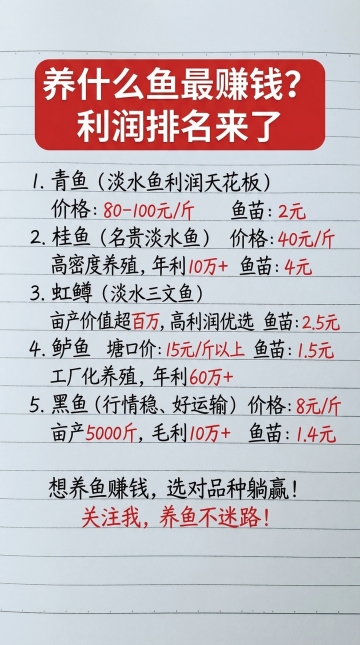 养什么鱼最赚钱？
利润排名来了
1. 青鱼（淡水鱼利润天花板）
价格：80-100元/斤 鱼苗：2元
2. 桂鱼（名贵淡水鱼） 价格：40元/斤
高密度养殖，年利10万+ 鱼苗：4元
3. 虹鳟（淡水三文鱼）
亩产价值超百万，高利润优选 鱼苗：2.5元
4. 鲈鱼 塘口价：15元/斤以上 鱼苗：1.5元
工厂化养殖，年利60万+
5. 黑鱼（行情稳、好运输） 价格：8元/斤
亩产5000斤，毛利10万+ 鱼苗：1.4元
想养鱼赚钱，选对品种躺赢！
关注我，养鱼不迷路！